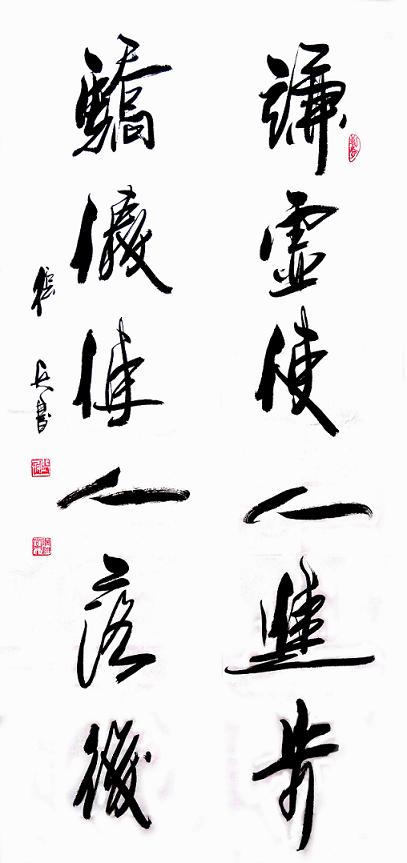 謙虛使人進步
驕傲使人落後